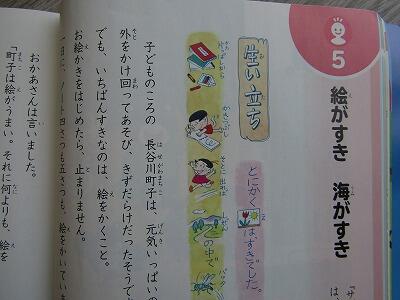 5
絵がすき 海がすき
「サ
は、
生い立ち
とにかく
はすきでした。
子どものころの 長谷川町子は、元気いっぱいの
外をかけ回ってあそび、きずだらけだったそうで
でも、いちばんすきなのは、絵をかくこと。
お絵かきをはじめたら、止まりません。
一日に、ノート四さつも五さつも、絵をかいていま
おかあさんは言いました。
「町子は絵がうまい。それに何よりも、絵を